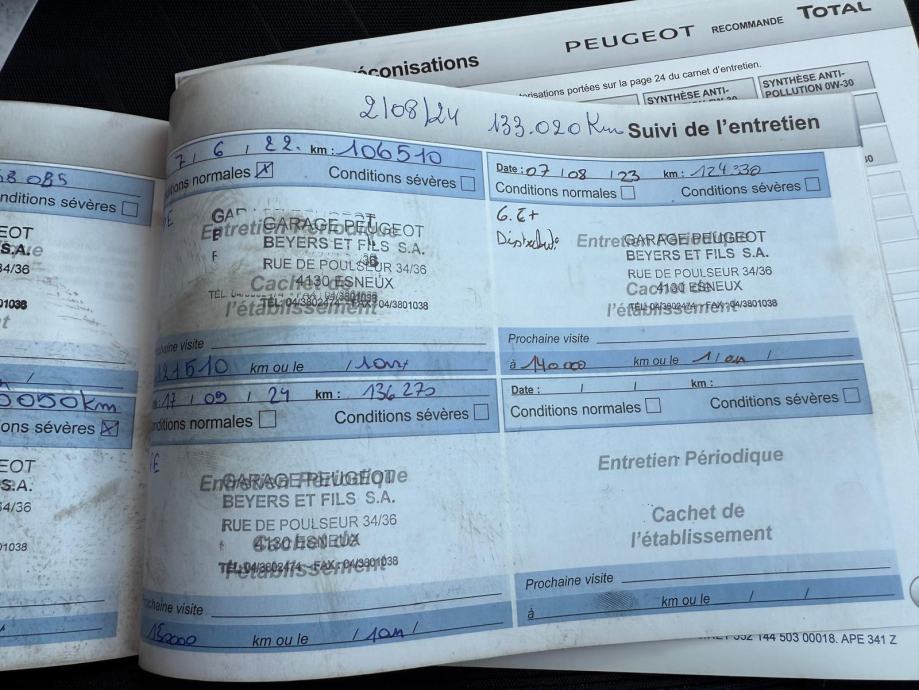 PEUGEOT RECOMMANDE TOTAL
éconisations
risations portées sur la page 24 du carnet d'entretien.
SYNTHÈSE ANTI-
SYNTHÈSE ANTI-
POLLUTION 0W-30
2/08/24 133.020 Km Suivi de l'entretien
7 / 6 / 22. km : 106510
itions normales Conditions sévères
GARAGE PEUGEOT
Entretien Périodique
BEYERS ET FILS S.A.
RUE DE POULSEUR 34/36
4130 ESNEUX
Cachet de
TÉL: 04/3802474 - FAX : 04/3801038
l'établissement
rochaine visite
121510 km ou le / 1an
Date : 07 / 08 / 23 km : 124330
Conditions normales Conditions sévères
G.E+
GARAGE PEUGEOT
BEYERS ET FILS S.A.
RUE DE POULSEUR 34/36
4130 ESNEUX
TÉL: 04/3802474 - FAX : 04/3801038
l'établissement
Prochaine visite
à 140000 km ou le 1 / an /
17 / 09 / 24 km : 136270
nditions normales Conditions sévères
GARAGE PEUGEOT
Entretien Périodique
BEYERS ET FILS S.A.
RUE DE POULSEUR 34/36
4130 ESNEUX
Cachet de
TÉL: 04/3802474 - FAX : 04/3801038
l'établissement
rochaine visite
150000 km ou le / 1an /
Date : / / km :
Conditions normales Conditions sévères
Entretien Périodique
Cachet de
l'établissement
Prochaine visite
à km ou le / /
nditions sévères
OT
S.A.
34/36
01038
5050km
ons sévères
EOT
S.A.
34/36
01038
552 144 503 00018. APE 341 Z